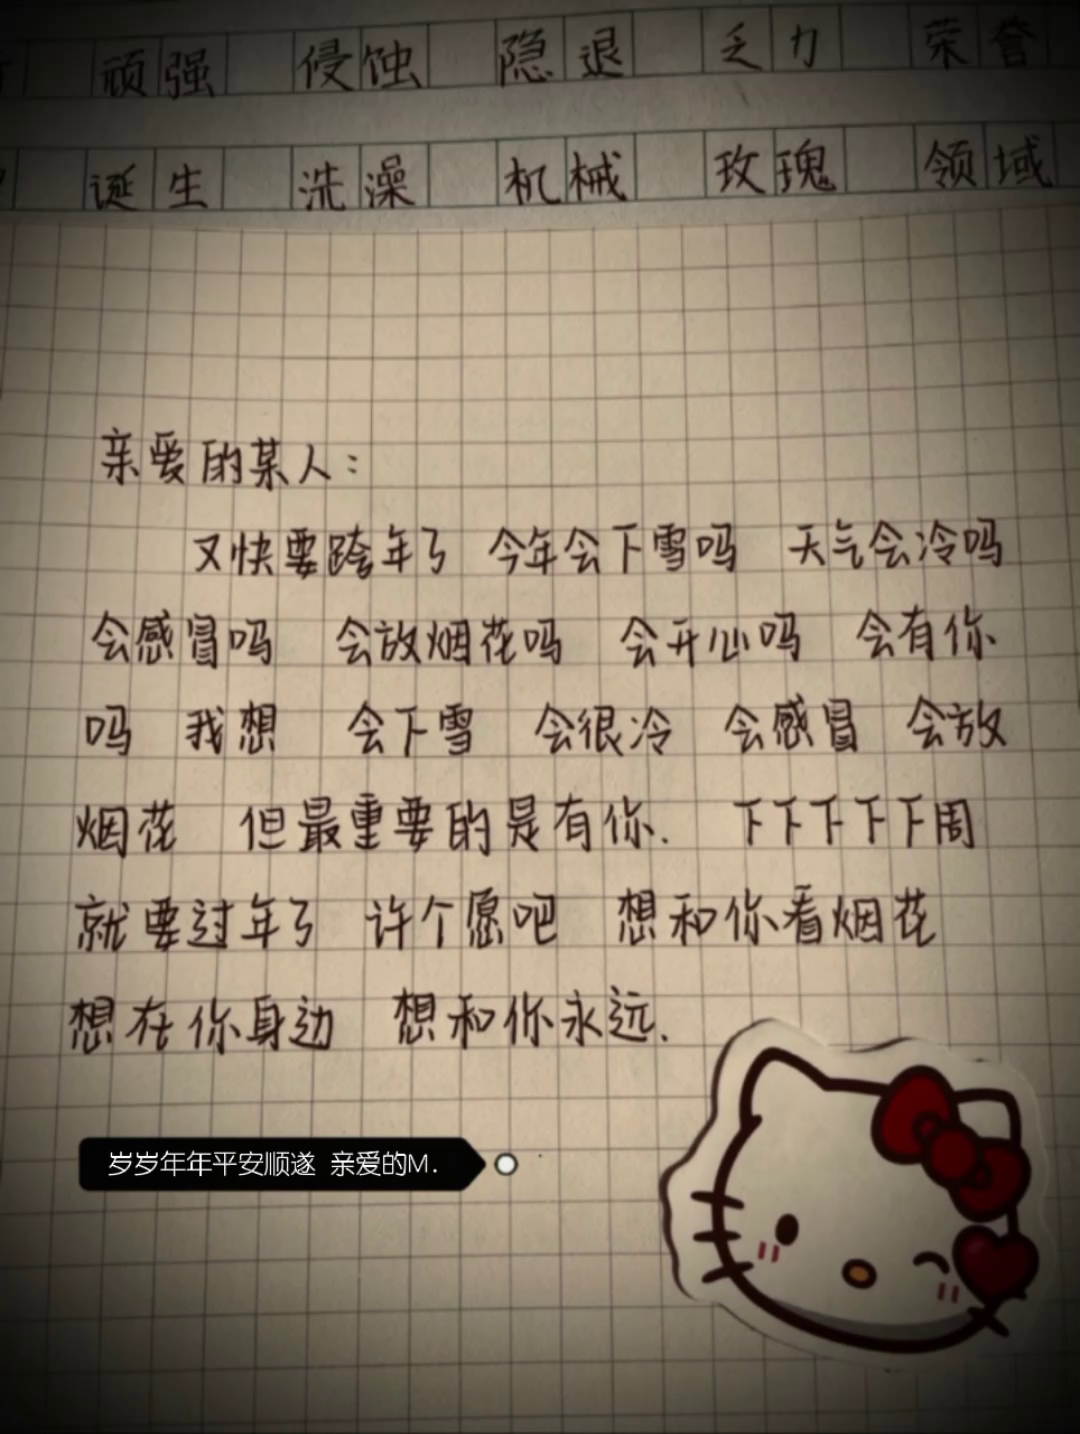 顽强 侵蚀 隐退 乏力 荣誉
诞生 洗澡 机械 玫瑰 领域
亲爱的某人：
又快要跨年了 今年会下雪吗 天气会冷吗
会感冒吗 会放烟花吗 会开心吗 会有你
吗 我想 会下雪 会很冷 会感冒 会放
烟花 但最重要的是有你. 下下下下下周
就要过年了 许个愿吧 想和你看烟花
想在你身边 想和你永远.
岁岁年年平安顺遂 亲爱的M.